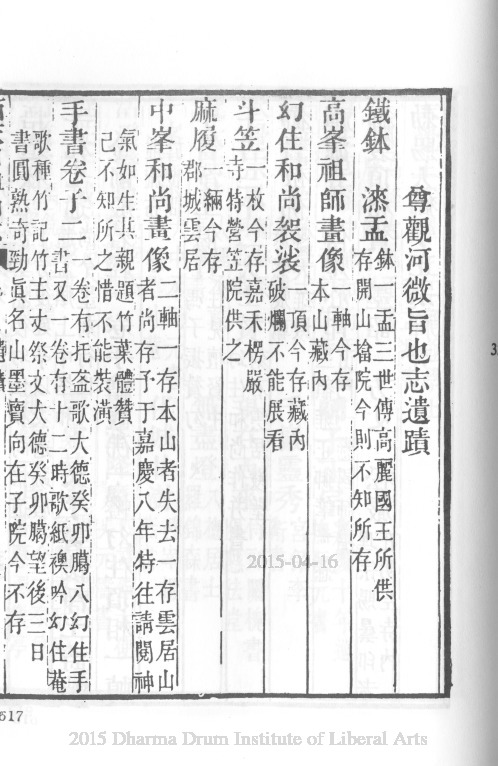 尊觀河微旨也志遺蹟
鐵鉢 漆盂 鉢一盂三世傳高麗國王所供
存開山墖院今則不知所存
高峯祖師畫像 一軸今存
本山藏內
幻住和尚袈裟 一頂今存藏內
破爛不能展看
斗笠 一枚今存嘉禾楞嚴
寺特營笠院供之
麻履 一緉今存
郡城雲居
中峯和尚畫像 二軸一存本山者失去一存雲居山
者尚存予于嘉慶八年特往請閱神
氣如生其親題竹葉體贊
己不知所之惜不能裝潢
手書卷子二 一卷有托盋歌大德癸卯臈八幻住手
書又一卷有十二時歌紙襖吟幻住菴
歌種竹記竹主丈祭文大德癸卯臈望後三日
書圓熟奇勁眞名山墨寶向在子院今不存
2015-04-16
517
2015 Dharma Drum Institute of Liberal Arts